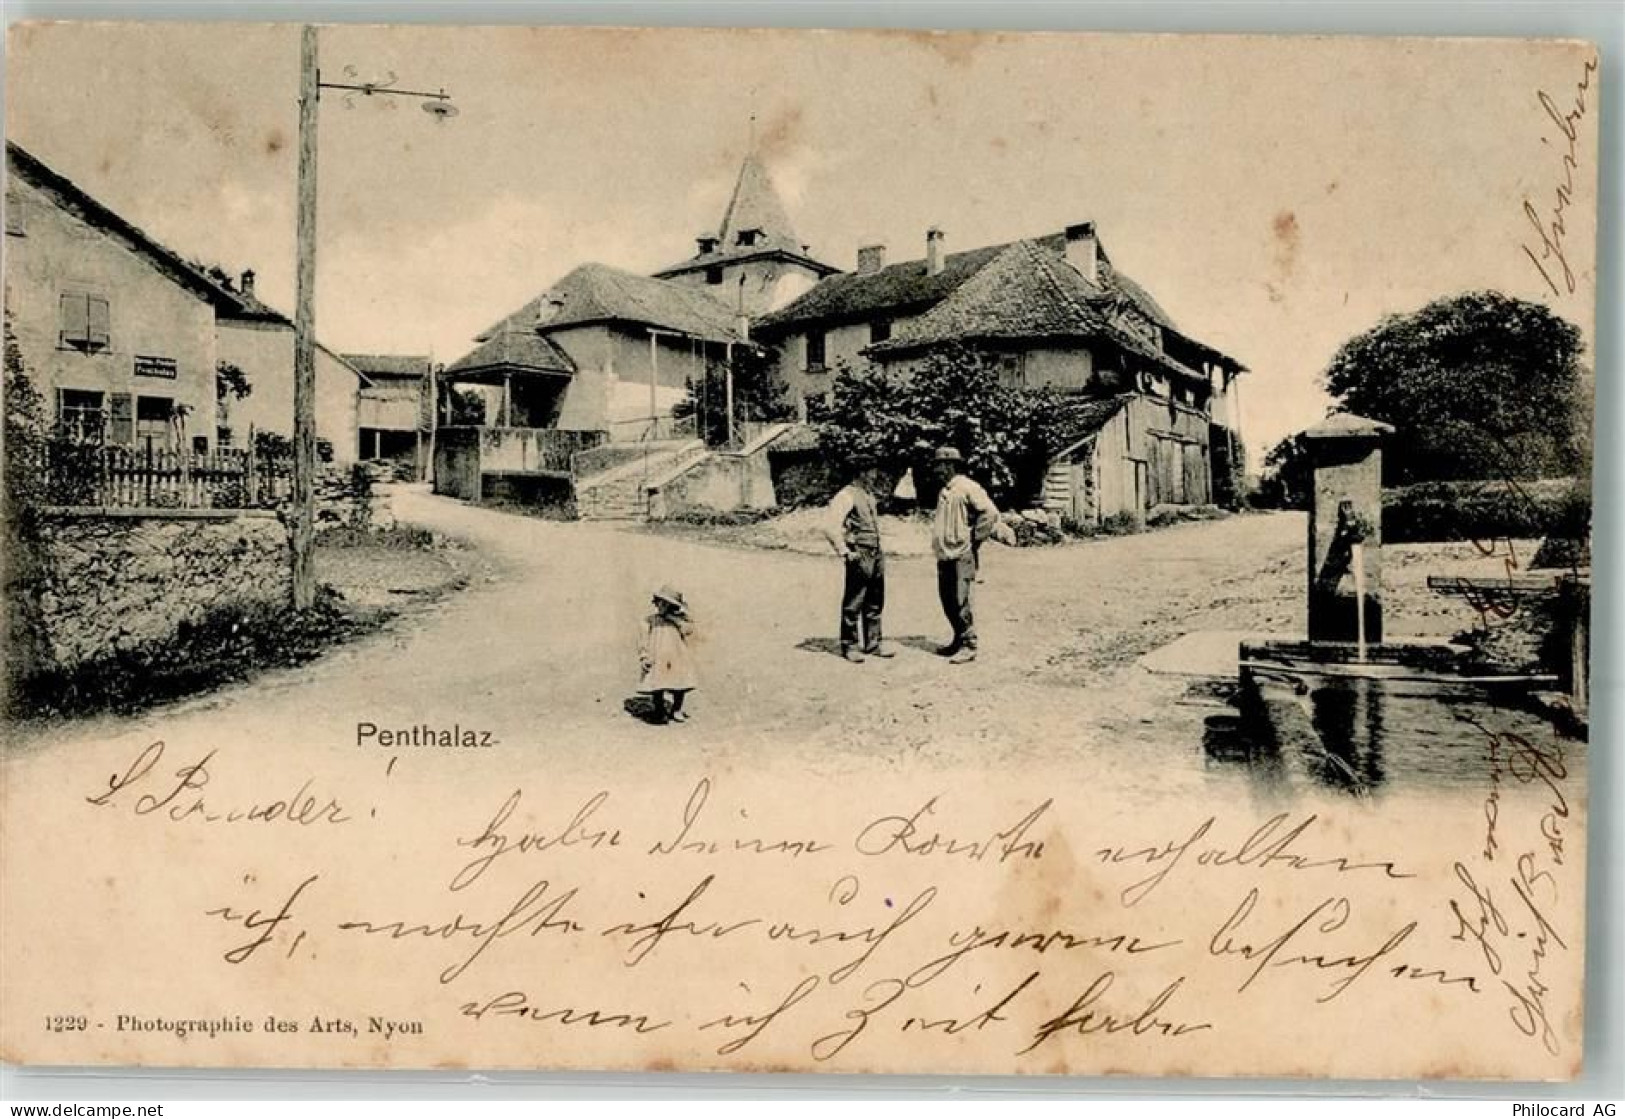 Penthalaz
L. Bruder!
Habe Deine Karte erhalten
ich, möchte ihn auch gerne besuchen
wenn ich Zeit habe
1229 - Photographie des Arts, Nyon
Ich
Grüß
schreiben
delcampe.net
Philocard AG